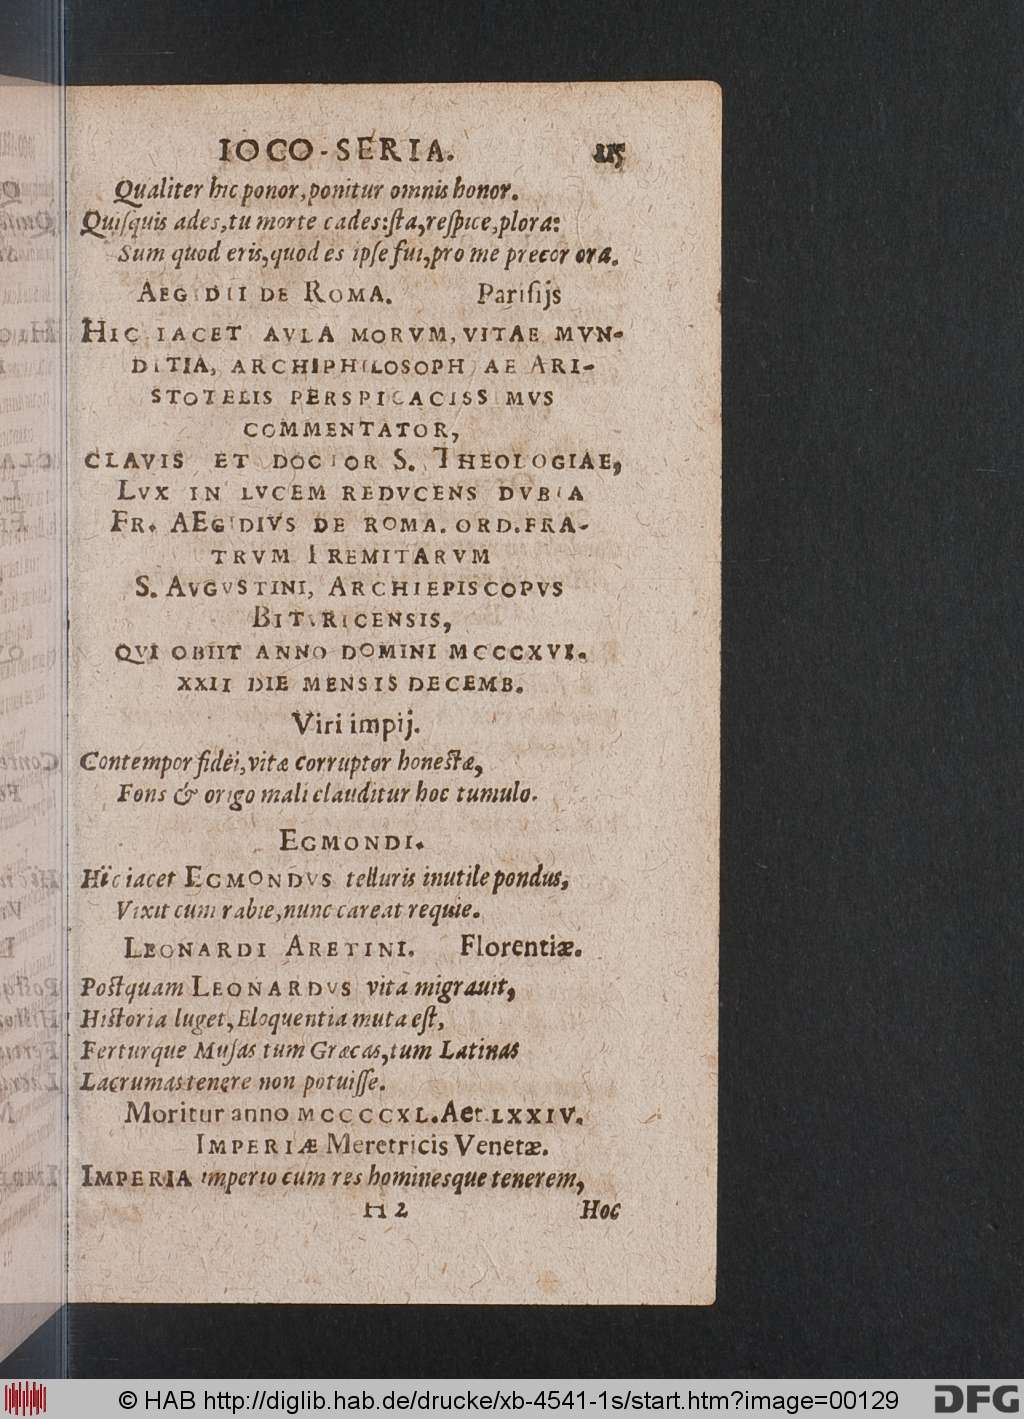 IOCO-SERIA. 115
Qualiter hic ponor, ponitur omnis honor.
Quiſquis ades, tu morte cades: ſta, reſpice, plora:
Sum quod eris, quod es ipſe fui, pro me precor ora.
AEGIDII DE ROMA. Pariſijs
HIC IACET AVLA MORVM, VITAE MVN-
DITIA, ARCHIPHILOSOPHIAE ARI-
STOTELIS PERSPICACISSIMVS
COMMENTATOR,
CLAVIS ET DOCTOR S. THEOLOGIAE,
LVX IN LVCEM REDVCENS DVBIA
FR. AEGIDIVS DE ROMA. ORD. FRA-
TRVM EREMITARVM
S. AVGVSTINI, ARCHIEPISCOPVS
BITVRICENSIS,
QVI OBIIT ANNO DOMINI MCCCXVI.
XXII DIE MENSIS DECEMB.
Viri impij.
Contempor fidei, vitæ corruptor honeſtæ,
Fons & origo mali clauditur hoc tumulo.
EGMONDI.
Hic iacet EGMONDVS telluris inutile pondus,
Vixit cum rabie, nunc careat requie.
LEONARDI ARETINI. Florentiæ.
Poſtquam LEONARDVS vita migrauit,
Hiſtoria luget, Eloquentia muta eſt,
Ferturque Muſas tum Græcas, tum Latinas
Lacrumas tenere non potuiſſe.
Moritur anno MCCCCXL. Aet. LXXIV.
IMPERIÆ Meretricis Venetæ.
IMPERIA imperio cum res hominesque tenerem,
H 2 Hoc
© HAB http://diglib.hab.de/drucke/xb-4541-1s/start.htm?image=00129 DFG